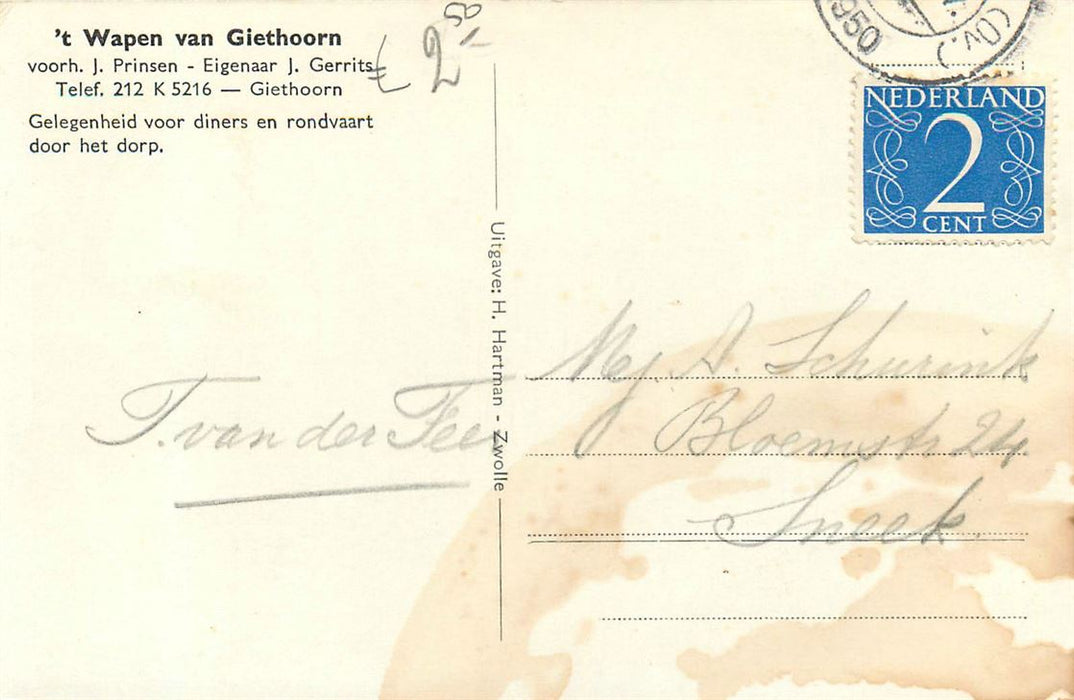 't Wapen van Giethoorn
voorh. J. Prinsen - Eigenaar J. Gerrits
Telef. 212 K 5216 — Giethoorn
Gelegenheid voor diners en rondvaart
door het dorp.
€ 2 50
T. van der Feer
Uitgave: H. Hartman - Zwolle
950
NEDERLAND
2
CENT
Mej. A. Schurink
Bloemstr 24.
Sneek.